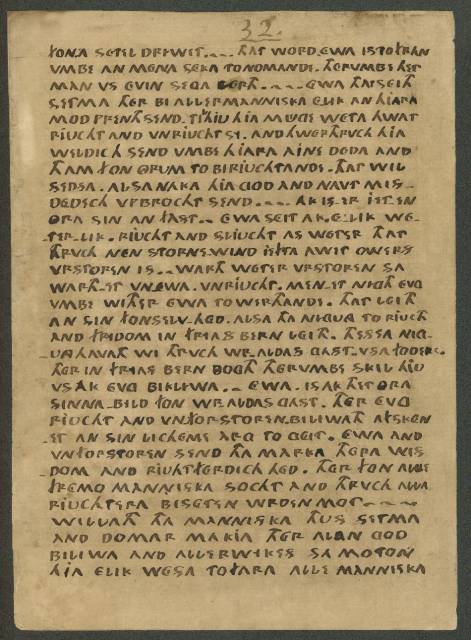 32.
FON.A SETEL DRIWET.... THAT WORD.EWA IS TO FRAN
VMBE AN MENA SEKA TO NOMANDE. THERVMBE HET
MAN VS EVIN SEGA LERTH.... EWA THAT SEIT
SETMA THER BI ALLERMANNISKA ELIK AN HIARA
MOD PRENTH SEND. TIL THIU HIA MUGE WETA HWAT
RIUCHT AND VNRIUCHT SI. AND HWERTHRUCH HIA
WELDICH SEND VMBE HIARA AINE DEDA AND
THAM FON ORUM TO BIRIUCHTANDE. THAT WIL
SEDSA. ALSA NAKA HIA GOD AND NAVT MIS-
DEDICH VPBROCHT SEND.... AK IS-ER IET-EN
ORA SIN AN FAST.. EWA SEIT AK. E-LIK WE-
TER-LIK. RIUCHT AND SLIUCHT AS WETER THAT
THRUCH NEN STORNE-WIND IEFTA AWET OWERS
VRSTOREN IS.. WARTH WETER VRSTOREN SA
WARTH-ET VNEWA. VNRIUCHT. MEN-ET NIGTH EVG
VMBE WITHER EWA TO WERTHANDE. THAT LEITH
AN SIN FONSELV-HED. ALSA THA NIGUNG TO RIUCHT
AND FRIDOM IN FRIAS BERN LEITH. THESSA NIG-
UNG HAVATH WI THRUCH WR.ALDAS GAST. VSA FODERS.
THER IN FRIAS BERN BOGTH. THERVMBE SKIL HIU
VS AK EVG BIKLIWA.. EWA. IS AK THET ORA
SINNA-BILD FON WR.ALDAS GAST. THER EVG
RIUCHT AND VNFORSTOREN BILIWATH. AFSKEN
-ET AN SIN LICHEME ARG TO GEIT. EWA AND
VNFORSTOREN SEND THA MARKA THERA WIS
DOM AND RIUHTFERDICH HED. THER FON ALLE
FREMO MANNISKA SOCHT AND THRUCH ALLA
RIUCHTERA BISETEN WRDEN MOT....
WILLATH THA MANNISKA THUS SETMA
AND DOMAR MAKIA THER ALAN GOD
BILIWA AND ALLERWEIKES SA MOTON
HIA ELIK WESA TO FARA ALLE MANNISKA